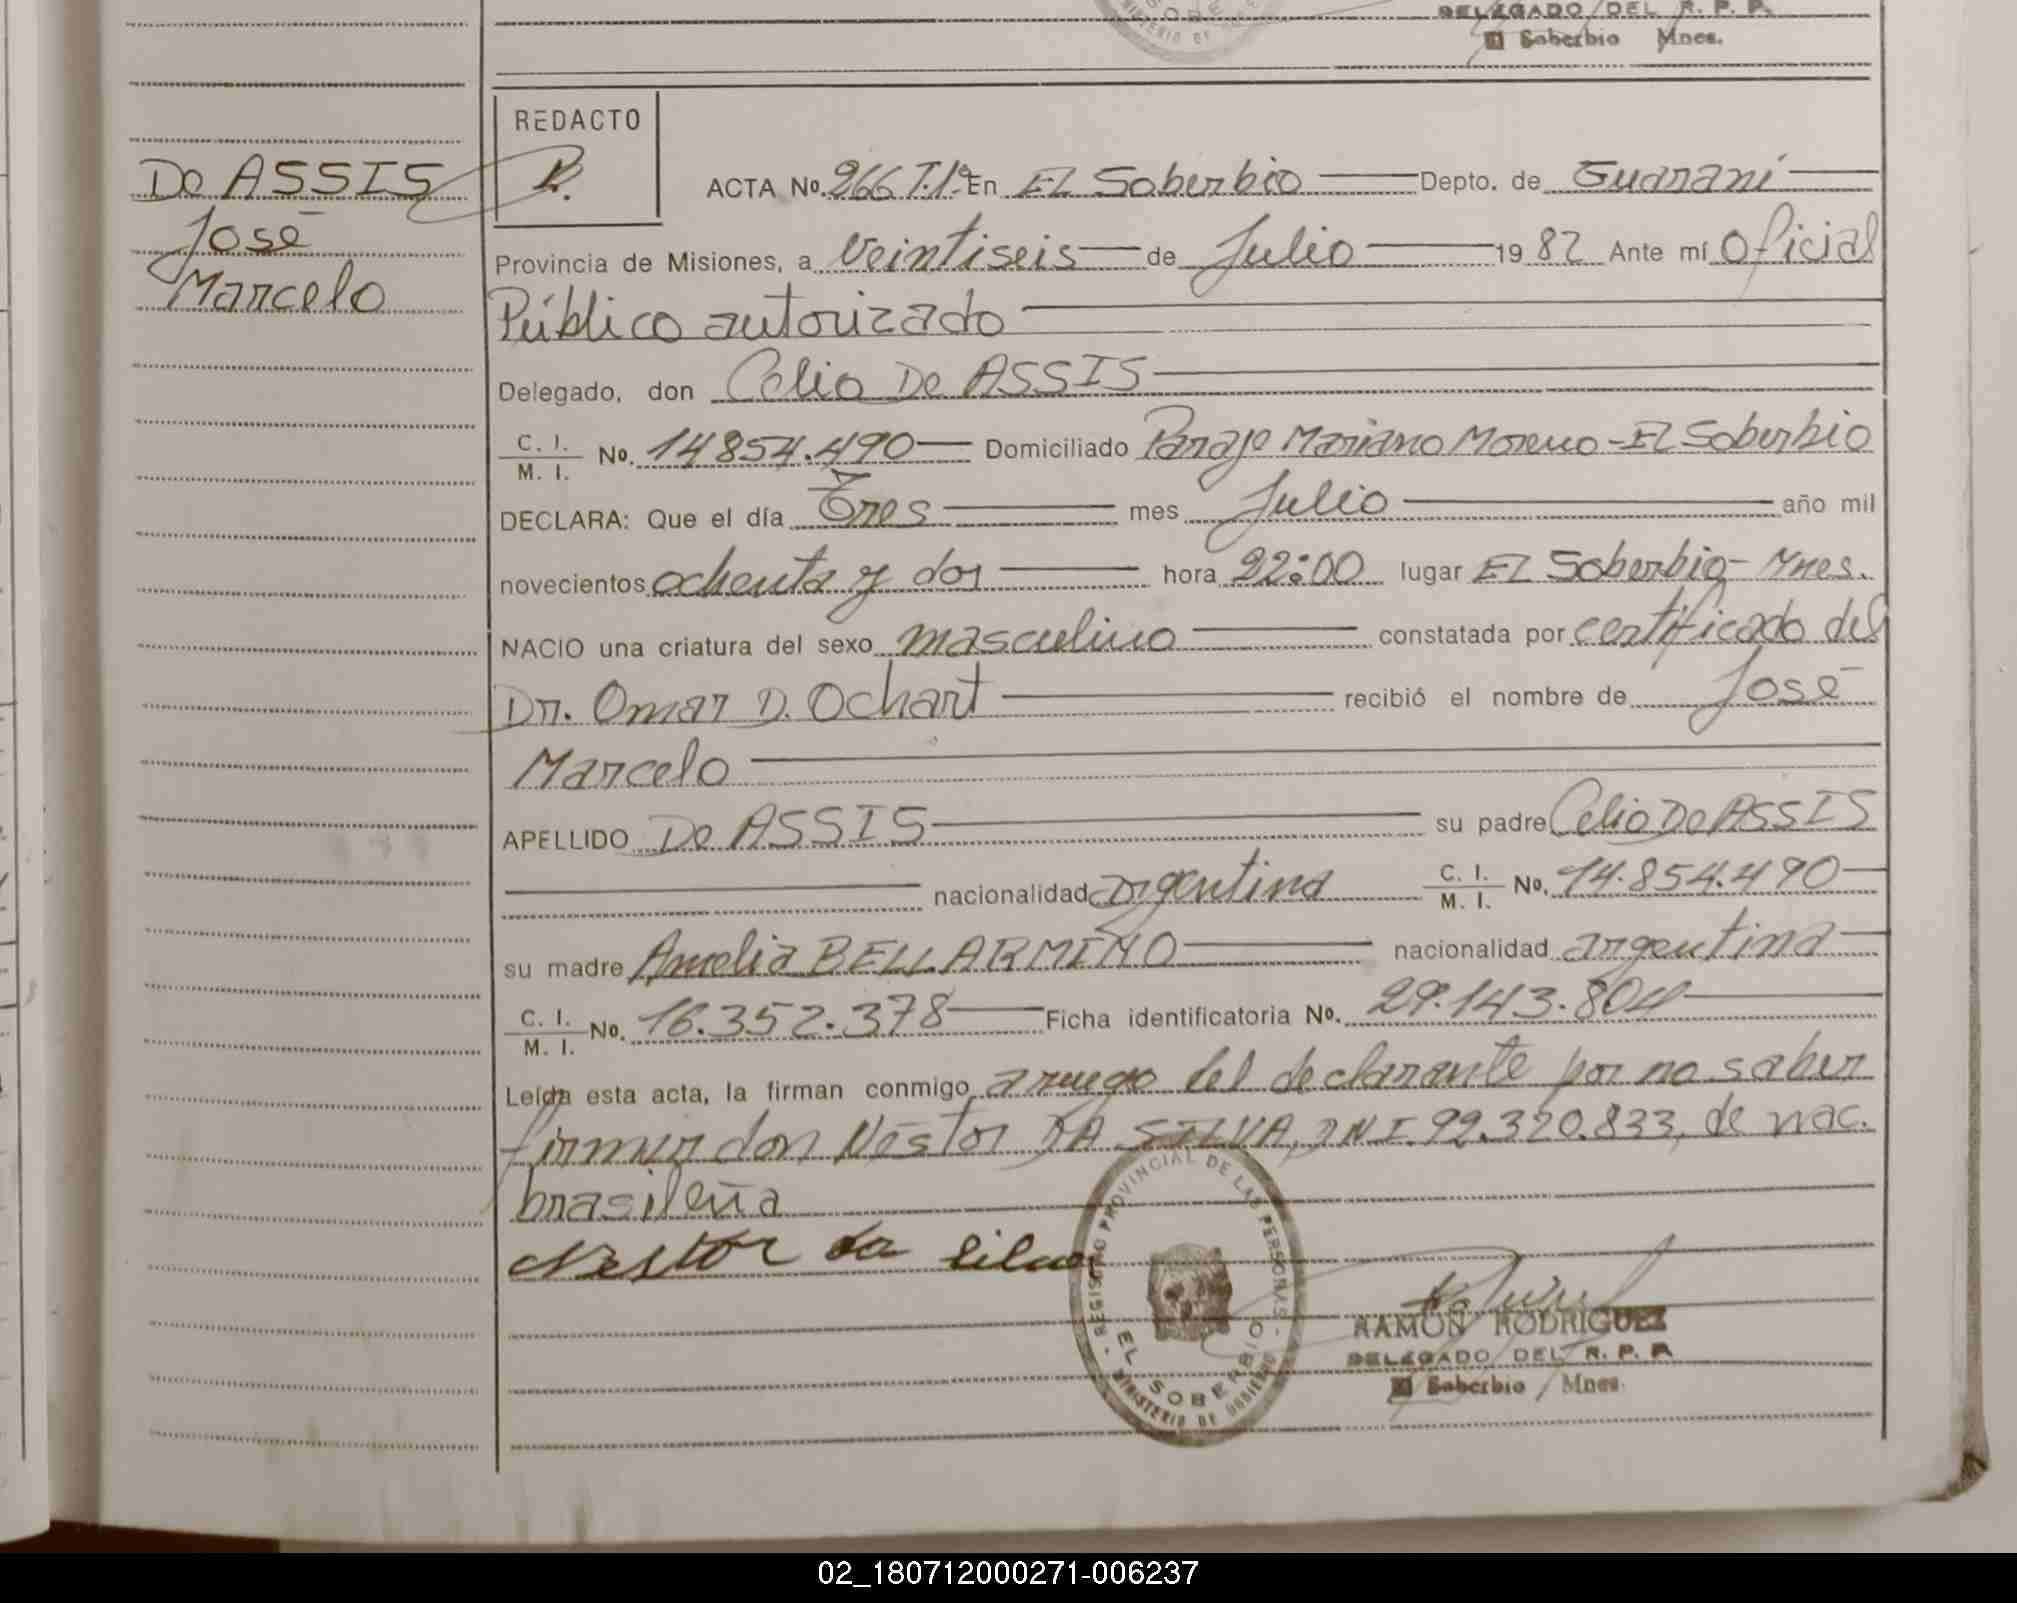 DELEGADO DEL R. P. P.
El Soberbio Mnes.
REDACTO
R.
De ASSIS
José
Marcelo
ACTA No. 266 T.1º En EL Soberbio Depto. de Guaraní
Provincia de Misiones, a Veintiseis de Julio 1982 Ante mí Oficial
Público autorizado
Delegado, don Celio De ASSIS
C. I. / M. I. No. 14854.490 Domiciliado Paraje Mariano Moreno - EL Soberbio
DECLARA: Que el día Tres mes Julio año mil
novecientos ochenta y dos hora 22:00 lugar EL Soberbio - Mnes.
NACIO una criatura del sexo masculino constatada por certificado del
Dr. Omar D. Ochart recibió el nombre de José
Marcelo
APELLIDO De ASSIS su padre Celio De ASSIS
nacionalidad argentina C. I. / M. I. No. 14.854.490
su madre Amelia BELLARMINO nacionalidad argentina
C. I. / M. I. No. 16.352.378 Ficha identificatoria No. 29.143.804
Leída esta acta, la firman conmigo a ruego del declarante por no saber
firmar don Néstor DA SILVA, DNI 92.320.833, de nac.
brasileña
Nestor da silva
REGISTRO PROVINCIAL DE LAS PERSONAS
EL SOBERBIO
MINISTERIO DE GOBIERNO
RAMON RODRIGUEZ
DELEGADO DEL R. P. P.
El Soberbio Mnes.
02_180712000271-006237